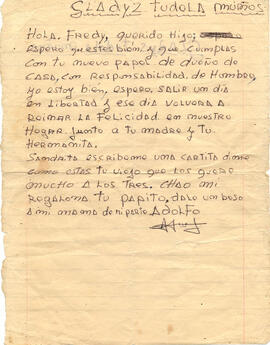 GLADYZ TUDELA MUÑOS
HOLA. FREDY, QUERIDO Hijo;
espero questes bien? y que CUMPLAS
CON TU NUEVO PAPEL DE DUEÑO DE
CASA, CON RESPONSABILIDAD. DE HOMBRE,
yo estoy bien, espero, SALIR UN DIA
EN LIBERTAD y ESE DIA VOLVERA A
REINAR LA FELICIDAD EN NUESTRO
HOGAR. JUNTO A TU MADRE y TU
HERMANITA.
SANDRITA ESCRIBEME UNA CARTITA dime
como estas tu viejo que LOS quere
MUCHO A LOS TRES. CHAO MI
REGALONA TU PAPITO, DALE UN beso
A mi mama de mi parte ADOLFO